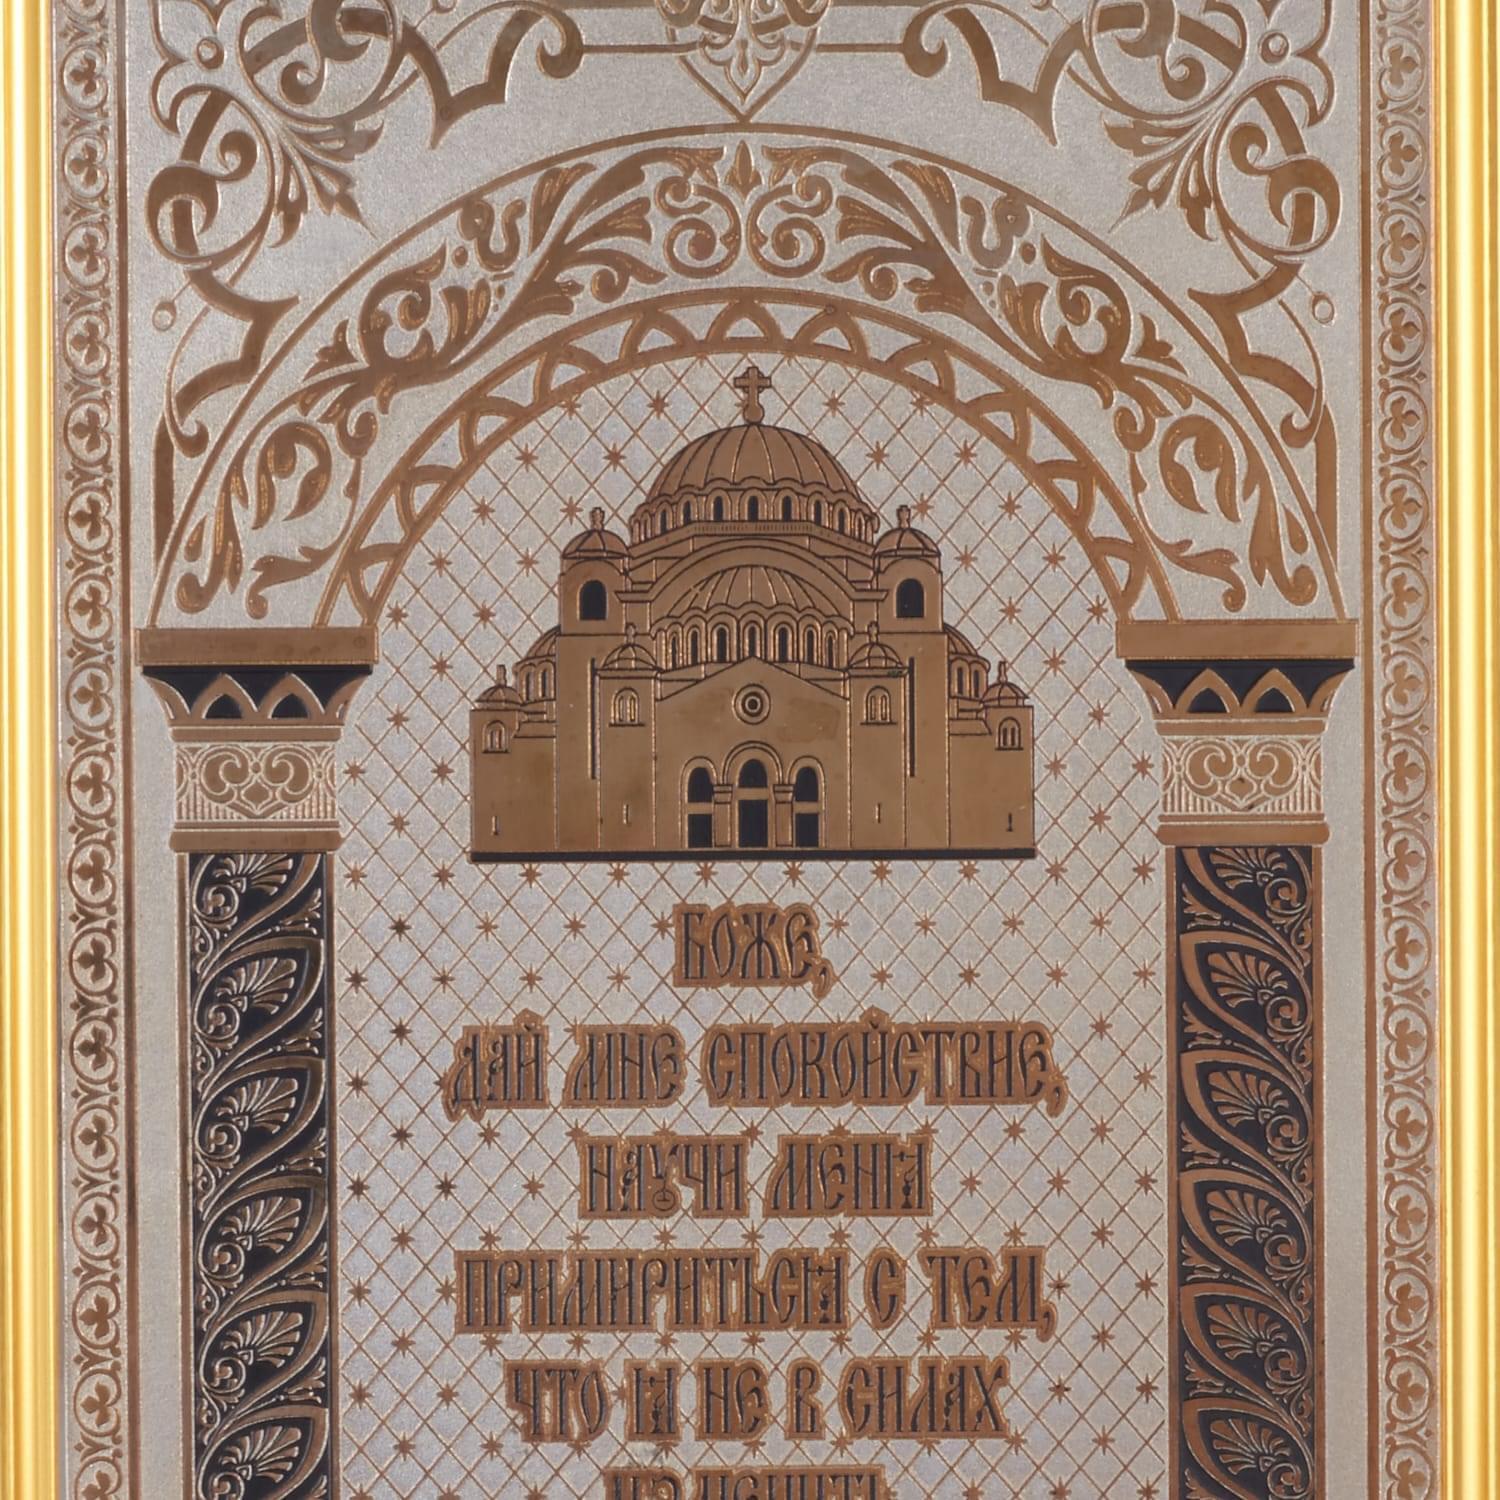 БОЖЕ,
ДАЙ МНЕ СПОКОЙСТВИЕ,
НАУЧИ МЕНЯ
ПРИМИРИТЬСЯ С ТЕМ,
ЧТО Я НЕ В СИЛАХ